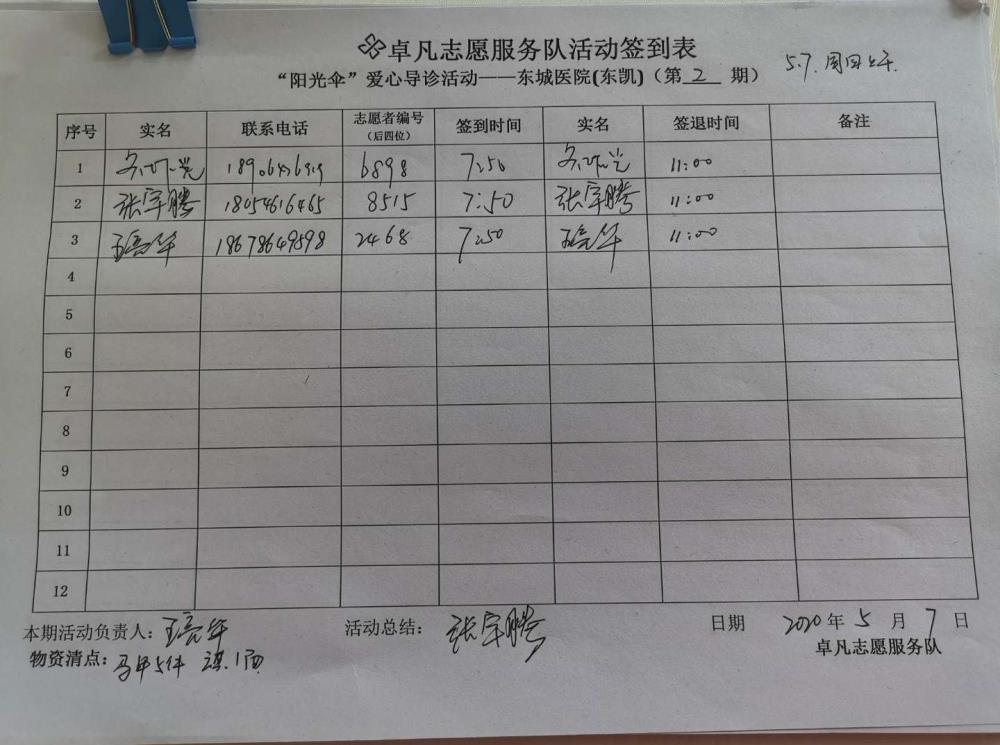 卓凡志愿服务队活动签到表
5.7. 周四上午.
“阳光伞”爱心导诊活动——东城医院(东凯)(第 2 期)
序号 实名 联系电话 志愿者编号(后四位) 签到时间 实名 签退时间 备注
1 6898 7:50 11:00
2 张宇腾 18054616465 8515 7:50 张宇腾 11:00
3 王亮华 18678649598 2468 7:50 王亮华 11:00
4
5
6
7
8
9
10
11
12
本期活动负责人: 王亮华 活动总结: 张宇腾 日期 2020年5月7日
物资清点: 马甲5件 旗1面 卓凡志愿服务队